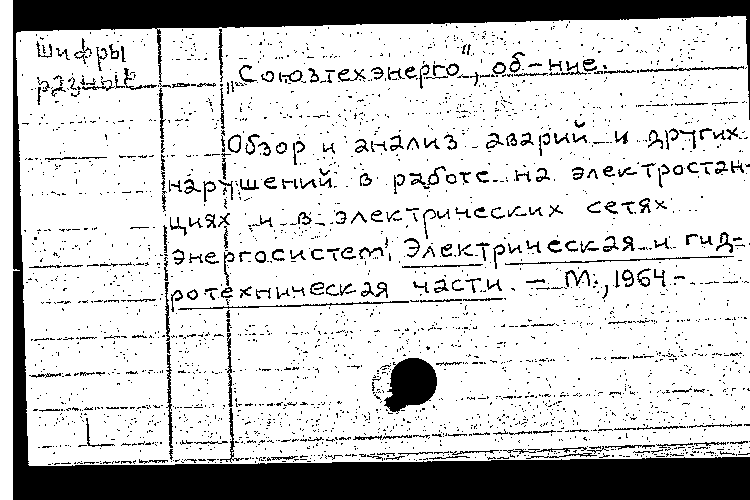 Шифры
разные
„Союзтехэнерго", об-ние.
Обзор и анализ аварий и других
нарушений в работе на электростан-
циях и в электрических сетях
энергосистем. Электрическая и гид-
ротехническая части. – М., 1964-